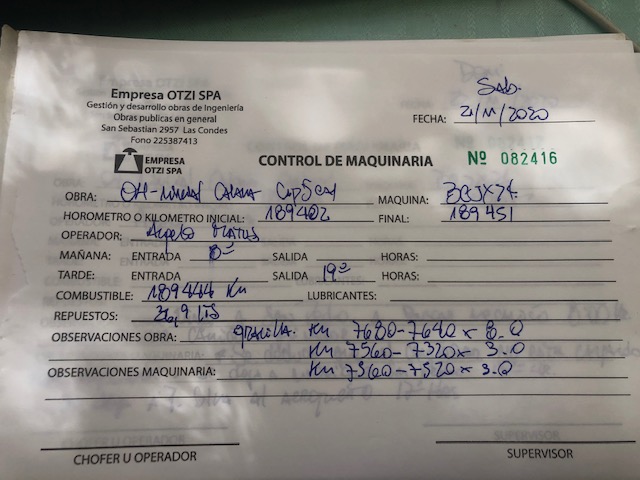 Empresa OTZI SPA
Gestión y desarrollo obras de Ingeniería
Obras publicas en general
San Sebastian 2957 Las Condes
Fono 225387413
EMPRESA
OTZI SPA
CONTROL DE MAQUINARIA
Nº 082416
FECHA: Sab. 21/11/2020
OBRA: MAQUINA: BCJX74
HOROMETRO O KILOMETRO INICIAL: 189402 FINAL: 189451
OPERADOR: Matus
MAÑANA: ENTRADA 8 SALIDA HORAS:
TARDE: ENTRADA SALIDA 19 HORAS:
COMBUSTIBLE: 189444 Km LUBRICANTES:
REPUESTOS:
OBSERVACIONES OBRA: Km 7680-7640 x 8.0
Km 7360-7320 x 3.0
OBSERVACIONES MAQUINARIA: Km 7560-7520 x 3.0
CHOFER U OPERADOR
SUPERVISOR